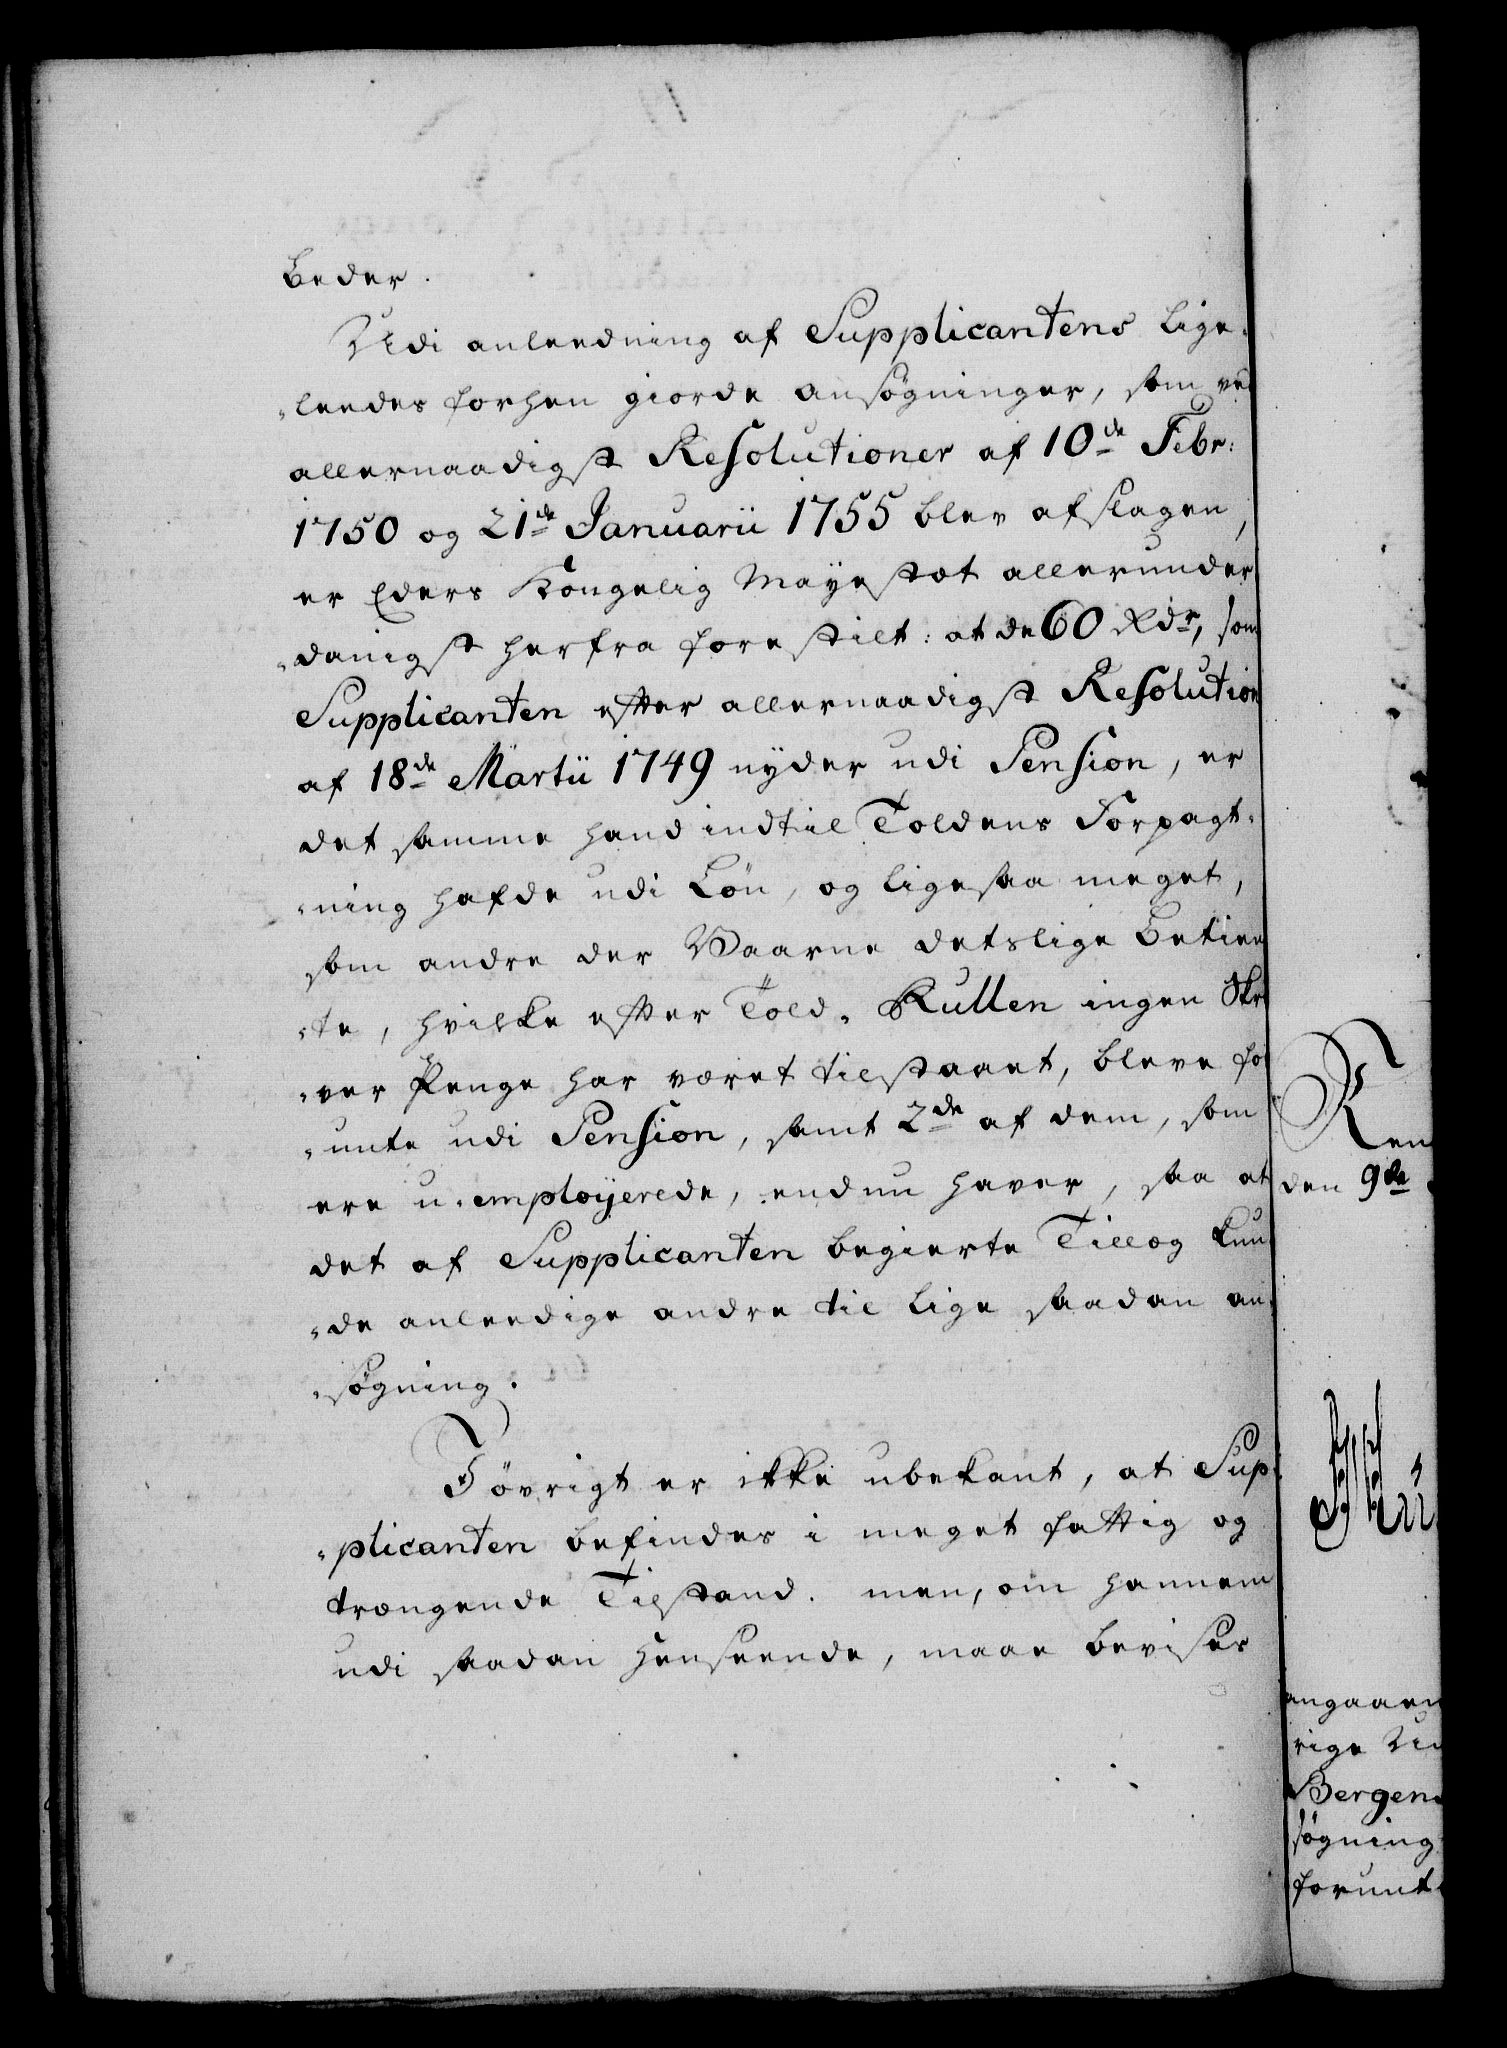 Beder.
Udi anleedning af Supplicantens lige-
-leedes forhen giorde ansøgninger, som ved
allernaadigst Resolutioner af 10de Febr:
1750 og 21de Januarii 1755 blev afslagen,
er Eders Kongelig Mayestæt allerunder-
-danigst herfra forestilt: at de 60 Rdr, som
Supplicanten efter allernaadigst Resolution
af 18de Martii 1749 nyder udi Pension, er
det samme hand indtil Toldens Forpagt-
-ning hafde udi Løn, og ligesaa meget,
som andre der Waarne detslige Betien
-te, hvilke efter Told-Rullen ingen Skri
-ver Penge har været tilstaaet, bleve for
-unte udi Pension, samt 2de af dem, som
ere u-emploijerede, endnu haver, saa at
det af Supplicanten begierte Tillæg kun-
-de anleedige andre til lige saadan an-
-søgning.
J øvrigt er ikke ubekant, at Sup-
-plicanten befindes i meget fattig og
trængende Tilstand. men, om hannem
udi saadan henseende, maae bevises
Ren
den 9de
angaaen
rige
Bergen
søgning
forunt